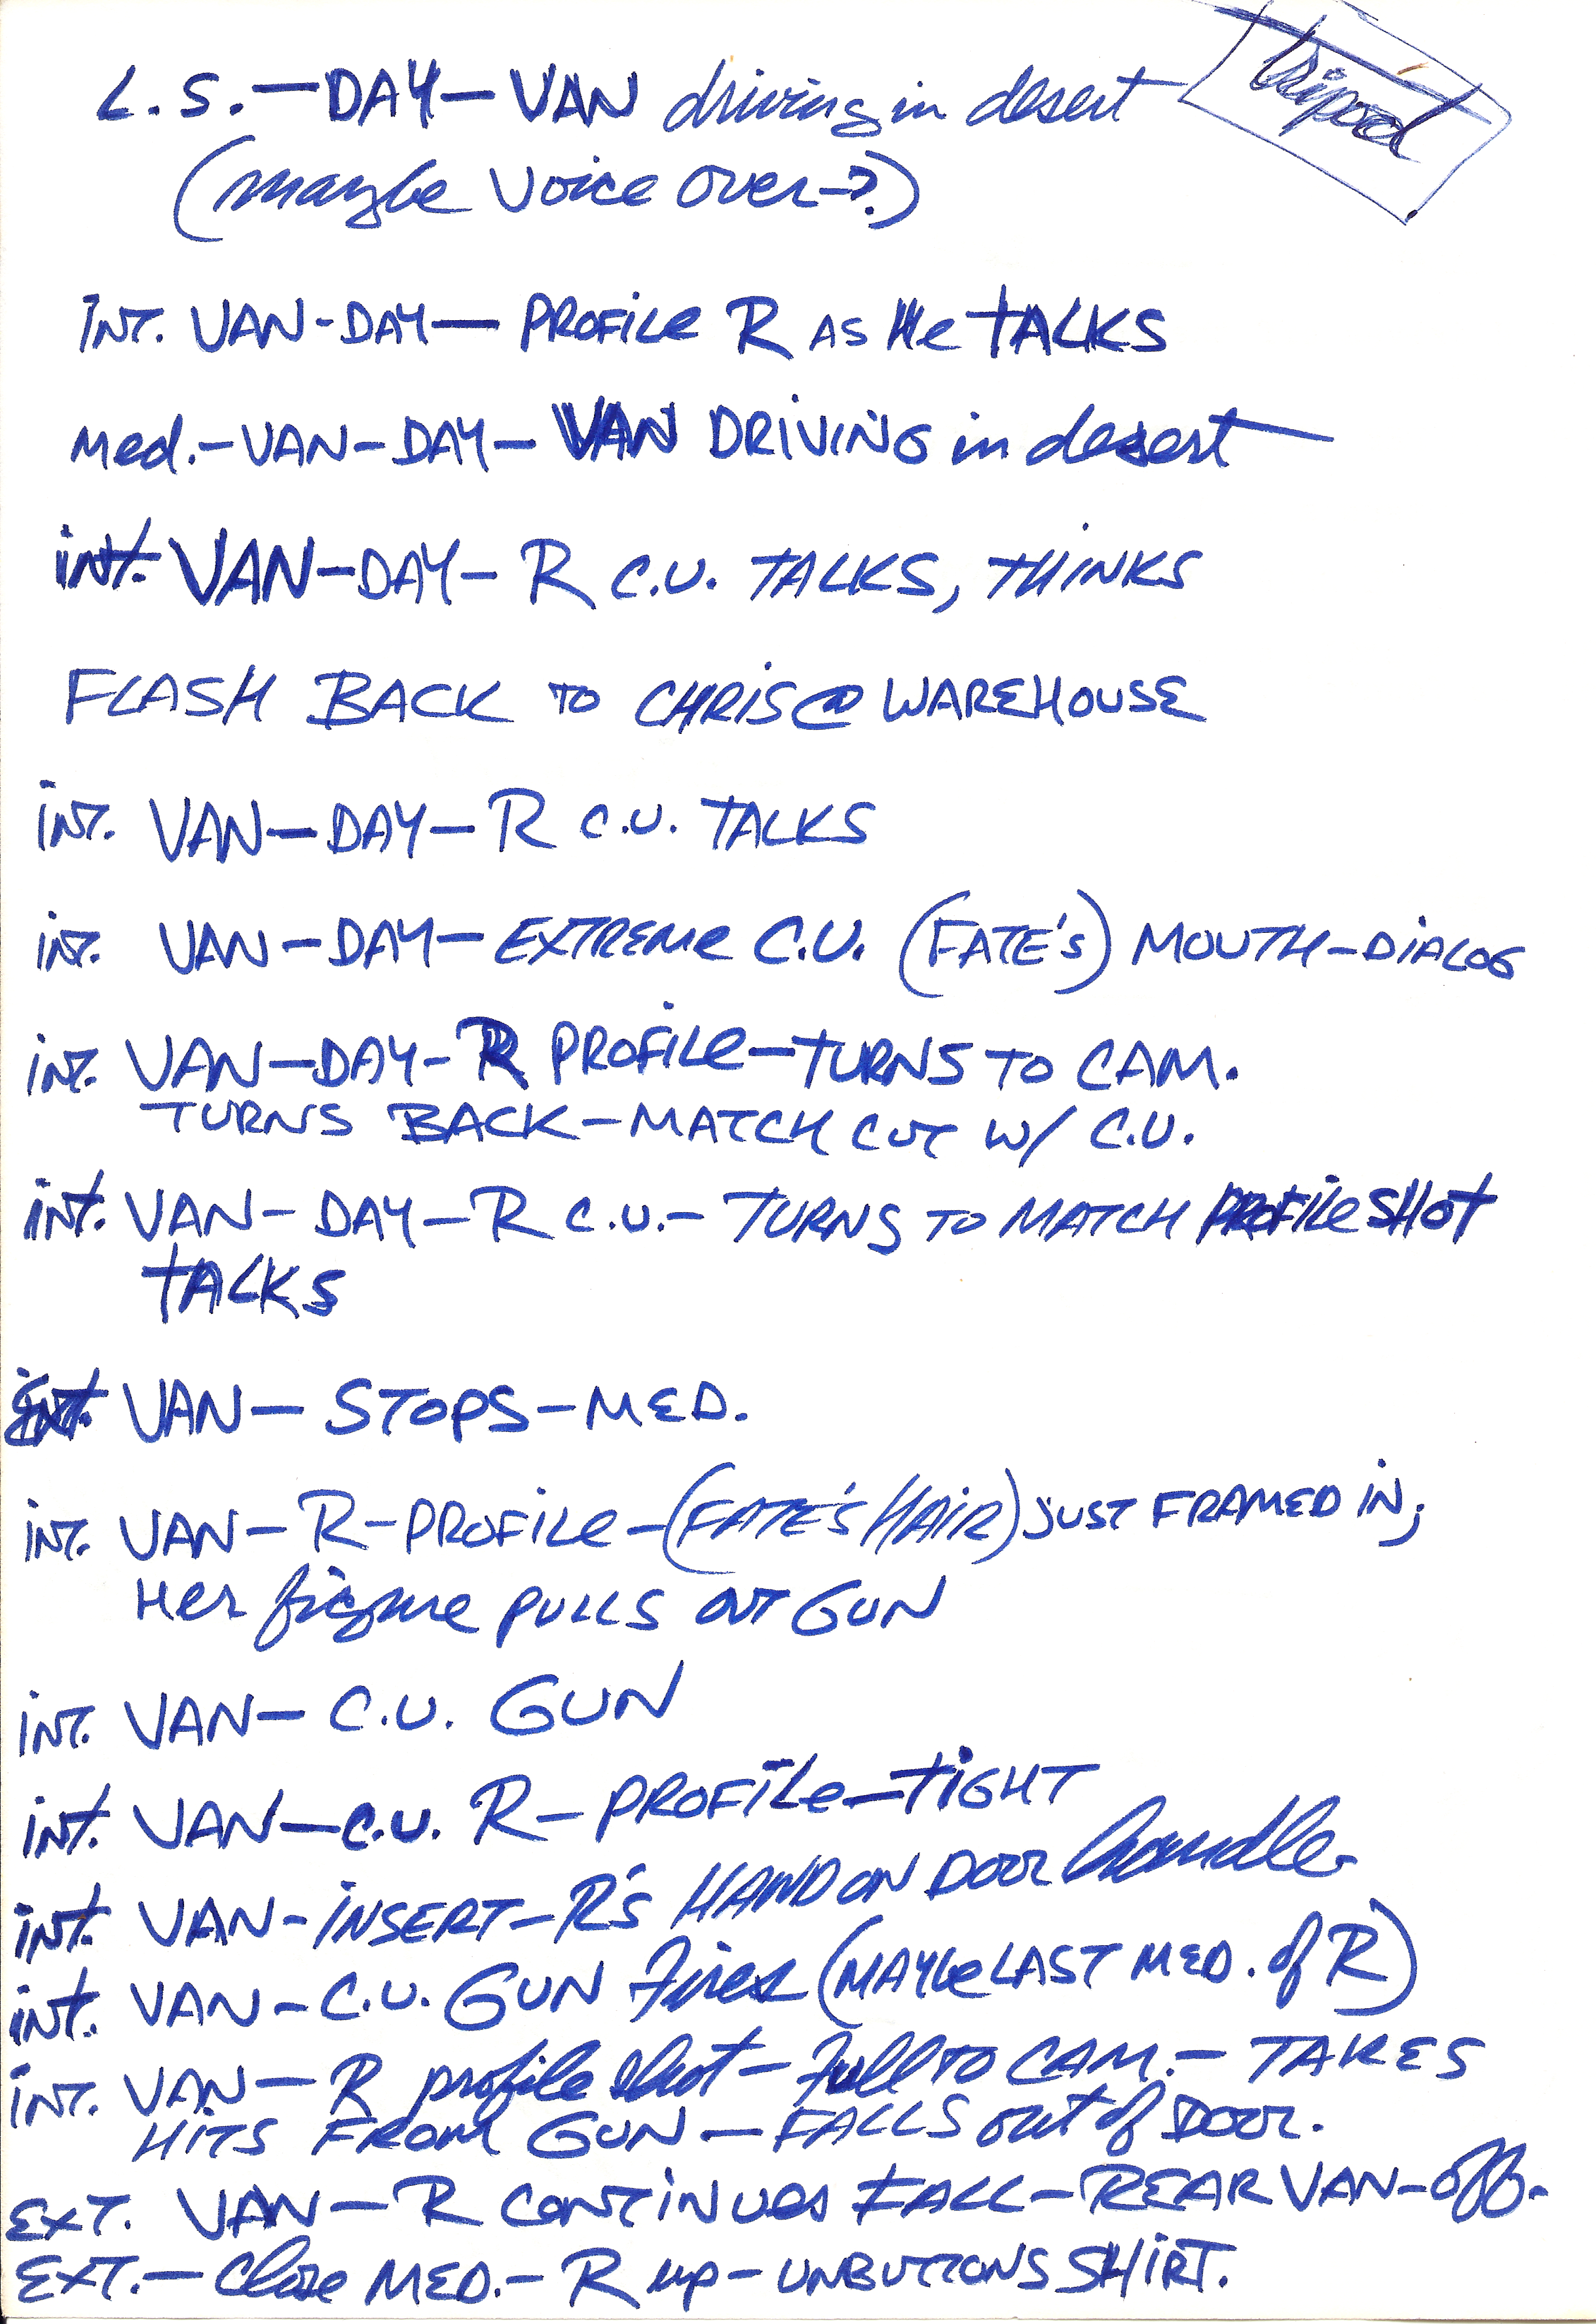 L.S. — DAY — VAN driving in desert — tripod
(maybe voice over-?)
INT. VAN - DAY — PROFILE R AS He TALKS
Med. - VAN - DAY - VAN DRIVING in desert
int. VAN - DAY - R C.U. TALKS, THINKS
FLASH BACK TO CHRIS @ WAREHOUSE
int. VAN — DAY — R C.U. TALKS
int. VAN — DAY — EXTREME C.U. (FATE'S) MOUTH - DIALOG
int. VAN — DAY - R PROFILE — TURNS TO CAM.
TURNS BACK — MATCH CUT W/ C.U.
int. VAN - DAY - R C.U. - TURNS TO MATCH PROFILE SHOT
TALKS
Ext. VAN — STOPS - MED.
int. VAN — R - PROFILE - (FATE'S HAIR) JUST FRAMED IN;
Her figure PULLS OUT GUN
int. VAN — C.U. GUN
int. VAN — C.U. R - PROFILE - TIGHT
int. VAN - INSERT - R'S HAND ON DOOR handle
int. VAN - C.U. GUN Fires (MAYBE LAST MED. of R)
int. VAN — R profile shot - Full TO CAM. - TAKES
HITS FROM GUN — FALLS out of DOOR.
EXT. VAN — R CONTINUES FALL - REAR VAN - off.
EXT. — Close MED. - R up - UNBUTTONS SHIRT.